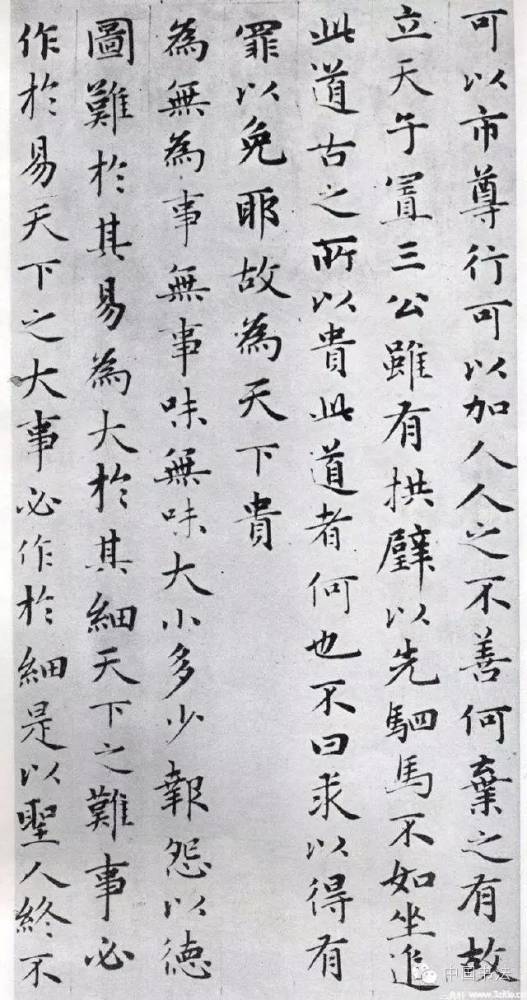 可以市尊行可以加人人之不善何棄之有故
立天子置三公雖有拱璧以先駟馬不如坐進
此道古之所以貴此道者何也不曰求以得有
罪以免耶故為天下貴
為無為事無事味無味大小多少報怨以德
圖難於其易為大於其細天下之難事必
作於易天下之大事必作於細是以聖人終不
中国书法